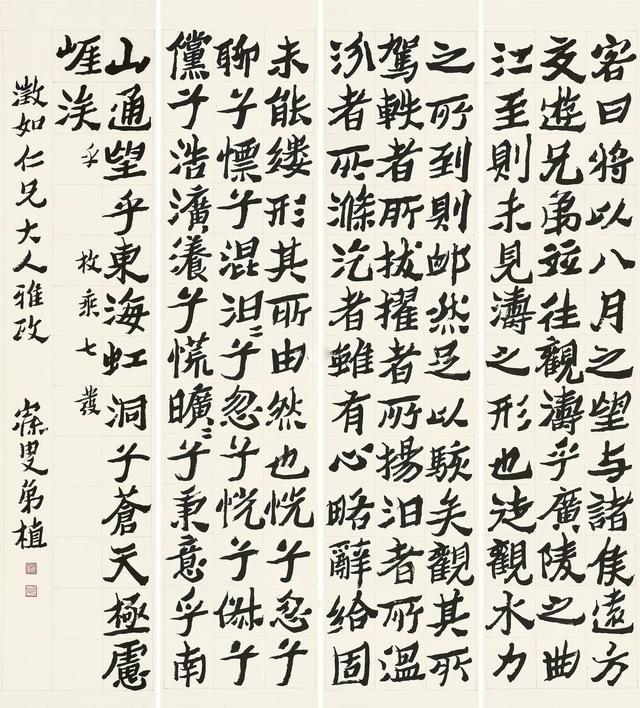 客曰將以八月之望與諸侯遠方
交遊兄弟竝往觀濤乎廣陵之曲
江至則未見濤之形也徒觀水力
之所到則卹然足以駭矣觀其所
駕軼者所拔擢者所揚汩者所溫
汾者所滌汔者雖有心略辭給固
未能縷形其所由然也怳兮忽兮
聊兮慓兮混汩〻兮忽兮怳兮俶兮
儻兮浩瀇瀁兮慌曠〻兮秉意乎南
山通望乎東海虹洞兮蒼天極慮
崕涘乎 枚乘七發
澂如仁兄大人雅政 寐叟弟植